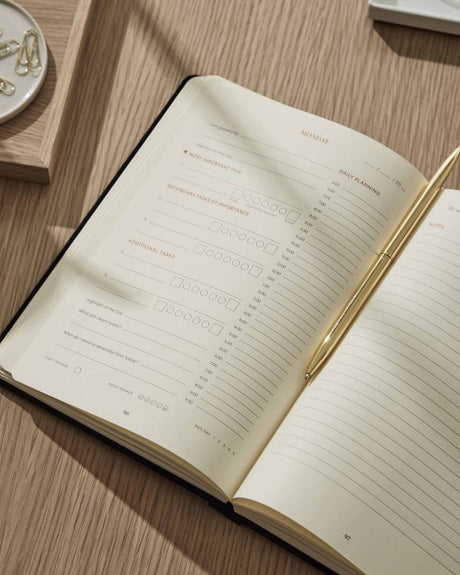 MONDAY
I am grateful for
Intention for the day
★ MOST IMPORTANT TASK
1.
SECONDARY TASKS OF IMPORTANCE
2.
3.
ADDITIONAL TASKS
4.
5.
Highlight of the Day
What did I learn today?
What do I want to remember from today?
HABIT TRACKER
MOOD TRACKER
DAILY PLANNING
/ / 20
6.00
6.30
7.00
7.30
8.00
8.30
9.00
9.30
10.00
10.30
11.00
11.30
12.00
12.30
1.00
1.30
2.00
2.30
3.00
3.30
4.00
4.30
5.00
5.30
6.00
6.30
7.00
7.30
8.00
8.30
9.00
9.30
RATE DAY 1 2 3 4 5
NOTES